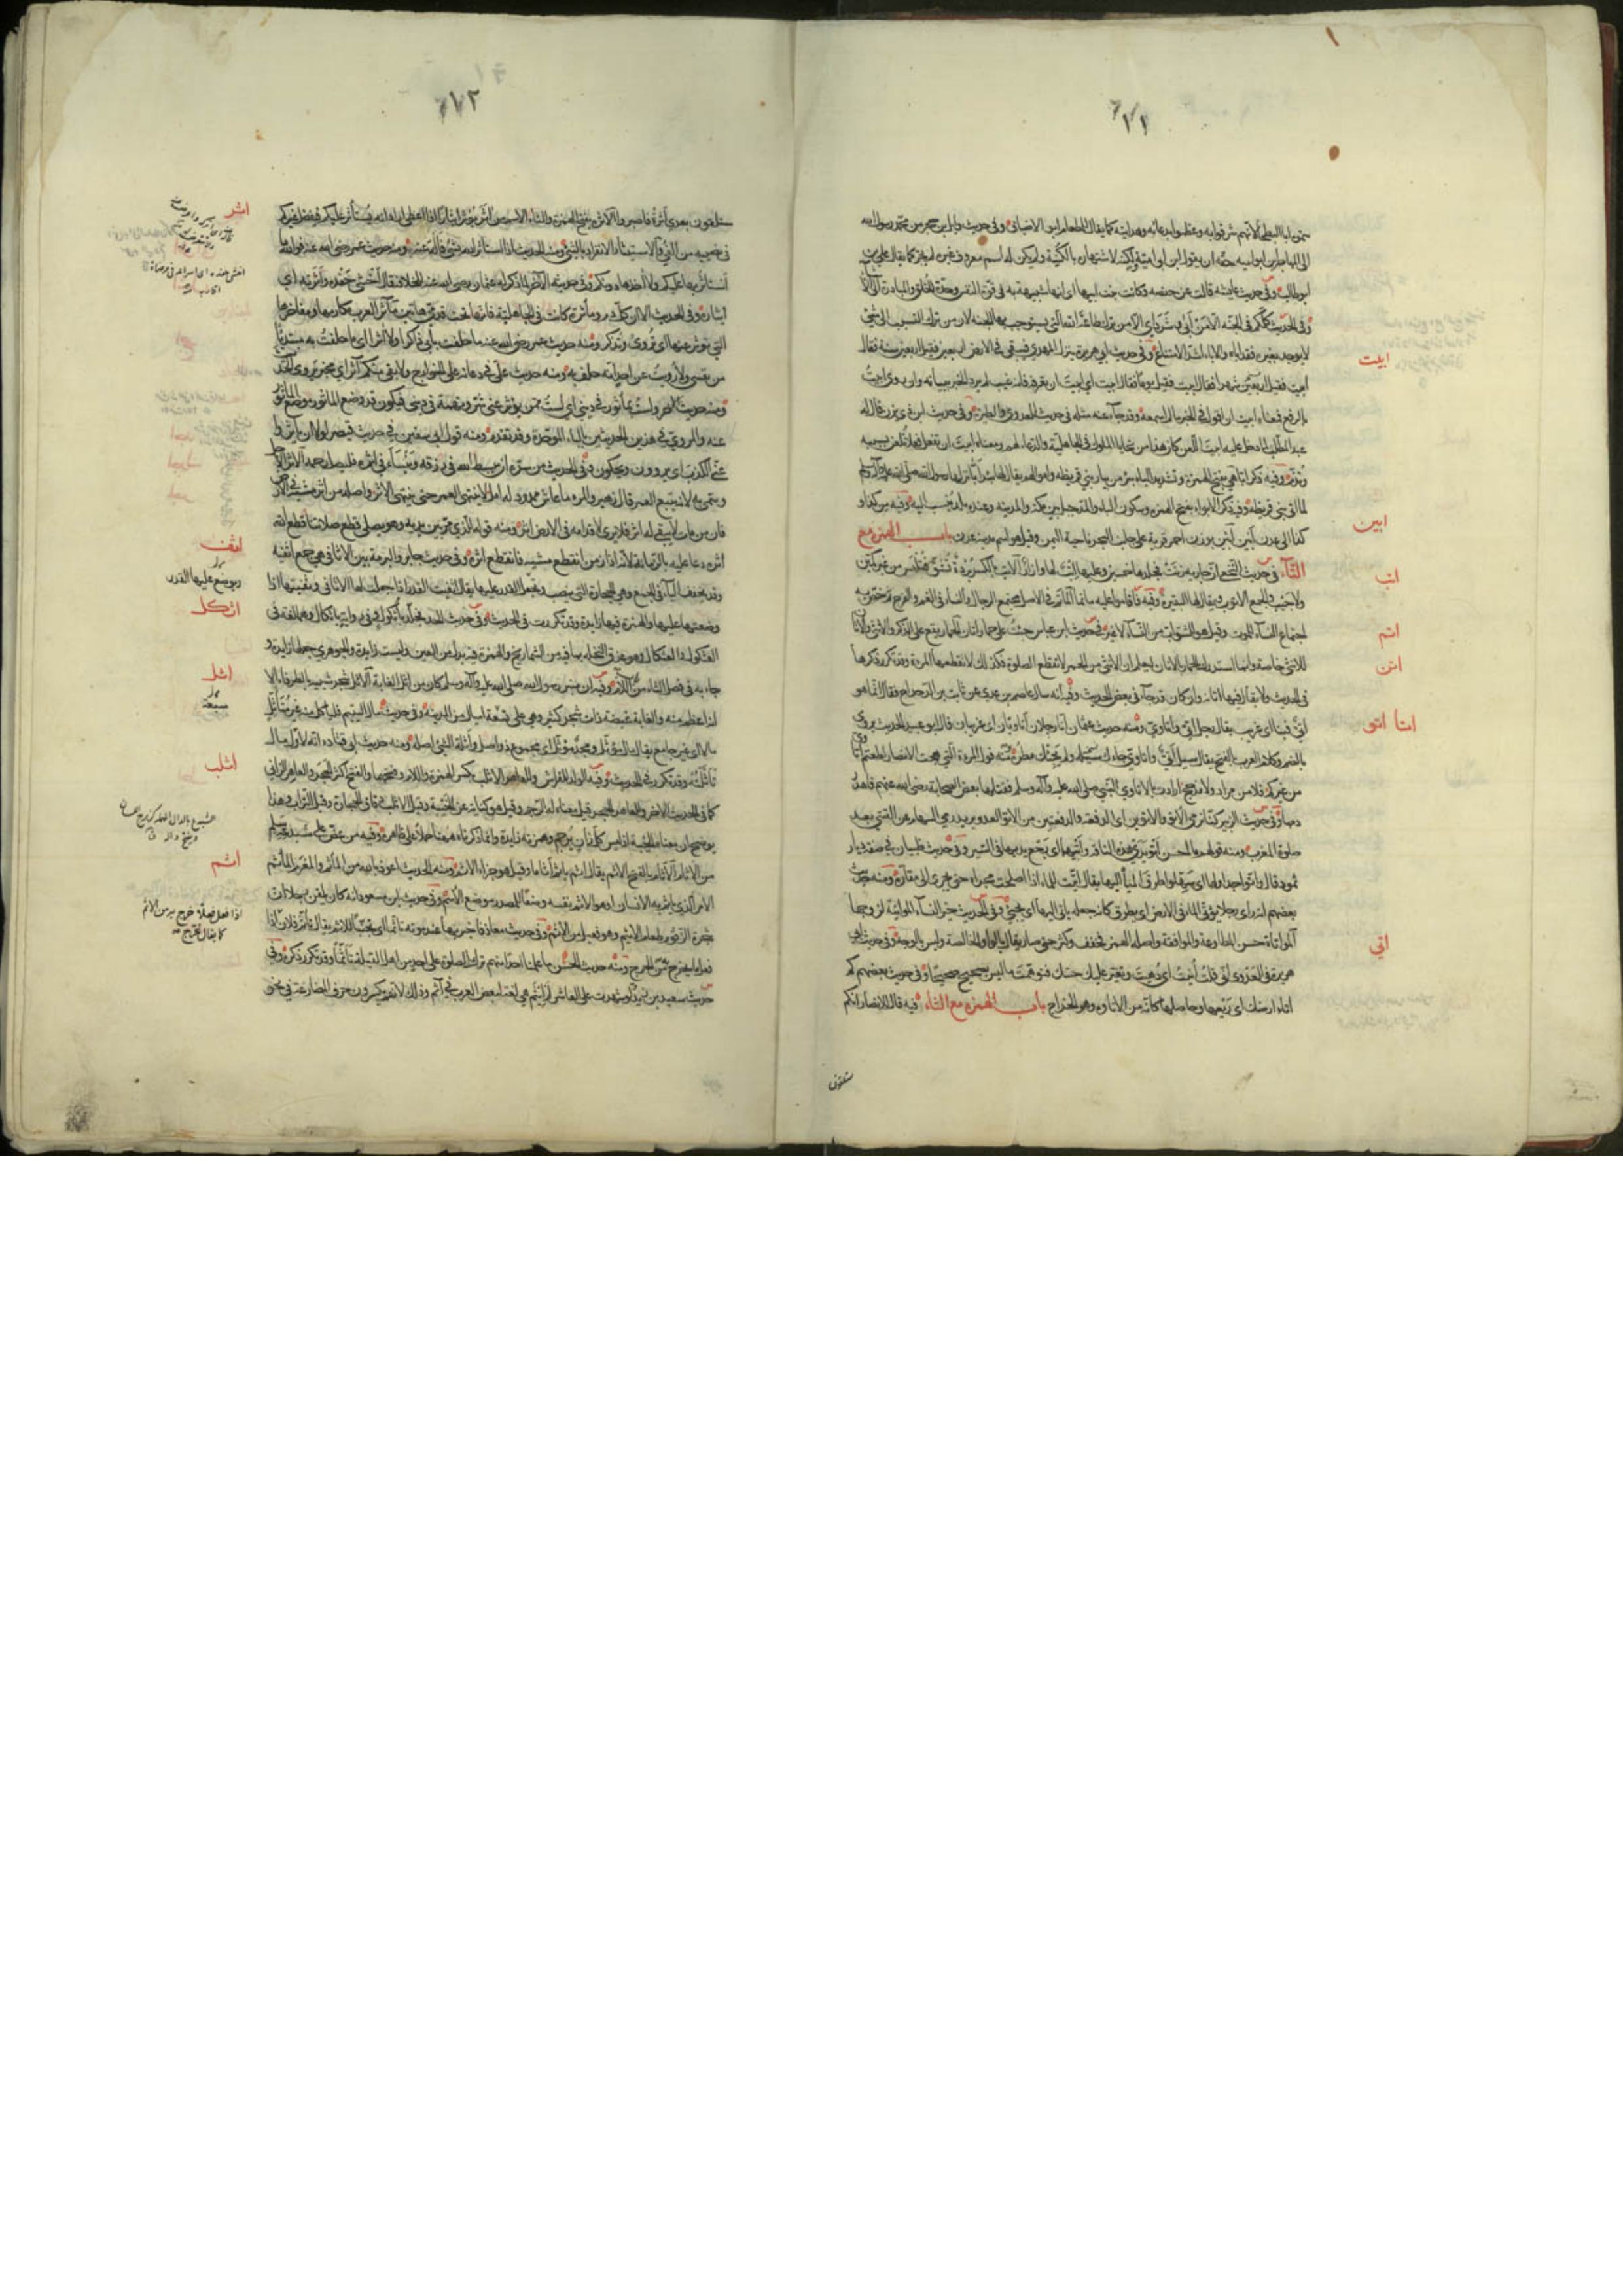 الى المهاجر ابن ابو اميه حقه ان يقول ابن ابى امية ولكنه لاشتهاره بالكنية ولم يكن له اسم معروف غيره لم يجر كما يقال على بن
ابو طالب وفى حديث عايشه قالت عن حفصه وكانت بنت ابيها اى انها شبيهة به فى قوة النفس وحدة الخلق والمبادرة الى الاشيا
وفى الحديث كلكم فى الجنه الا من ابى وشرد اى الا من ترك طاعة الله التى يستوجب بها الجنه لان من ترك التسبب الى شئ
لا يوجد بغيره فقد اباه والاباء اشد الامتناع وفى حديث ابى هريرة ينزل المهدى فيبقى فى الارض اربعين فقيل اربعين سنة فقال
ابيت فقيل اربعين شهرا فقال ابيت فقيل يوما فقال ابيت اى ابيت ان تعرفه فانه غيب لم يرد الخبر ببيانه وان روى ابيت
بالرفع فمعناه ابيت ان اقول فى الخبر ما لم اسمعه وقد جاء عنه مثله فى حديث العدوى والطيرة وفى حديث ابن ذى يزن قال له
عبد المطلب لما دخل عليه ابيت اللعن كان هذا من تحايا الملوك فى الجاهلية والدعاء لهم ومعناه ابيت ان تفعل فعلا تلعن بسببه
وتذم وفيه ذكر ابا هى بفتح الهمزة وتشديد الباء بئر من بيار بنى قريظه واموالهم يقال لها بئر ابا نزلها رسول الله صلى الله عليه وآله وسلم
لما اتى بنى قريظه وفيه ذكر الابواء بفتح الهمزه وسكون الباء والمد جبل بين مكه والمدينه وعنده بلد ينسب اليه وفيه من كذا و
كذا الى عدن ابين ابين بوزن احمر قرية على جانب البحر ناحية اليمن وقيل هو اسم مدينة عدن باب الهمزه مع
التاء فى حديث النخعى ان جارية زنت فجلدها خمسين وعليها اتب لها وازار الاتب بالكسر بردة تشق فتلبس من غير كمين
ولا جيب والجمع الاتوب ويقال لها البقيرة وفيه فاقاموا عليه ماتما الماتم فى الاصل مجتمع الرجال والنساء فى الغم والفرح ثم خص به
اجتماع النساء للموت وقيل هو للشواب من النساء لا غير فى حديث ابن عباس جئت على حمار اتان الحمار يقع على الذكر والانثى والاتان
للانثى خاصة وانما استدرك الحمار بالاتان ليعلم ان الانثى من الحمر لا تقطع الصلوة فكذلك لا تقطعها المراة وقد تكرر ذكرها
فى الحديث ولا يقال فيها اتانة وان كان قد جاء فى بعض الحديث وفيه انه سال عاصم بن عدى عن ثابت بن الدحداح فقال انما هو
اتى فينا اى غريب يقال رجل اتى واتاوى ومنه حديث عثمان انا رجلان اتاويان اى غريبان قال ابو عبيد الحديث يروى
بالضم وكلام العرب بالفتح يقال سيل اتى واتاوى جاءك سيله ولم يجئك مطره ومنه قول المراة التى هجت الانصار اطعتم اتاوى
من غيركم فلا من مراد ولا مذحج ارادت بالاتاوى النبى صلى الله عليه وآله وسلم فقتلها بعض الصحابة رضى الله عنهم فاهدر
دمها وفى حديث الزبير كنا نرمى الاتو والاتوين اى الدفعة والدفعتين من الاتو العدو يريد رمى السهام عن القسى بعد
صلوة المغرب ومنه قولهم ما احسن اتو يدى هذه الناقة واتيهما اى رجع يديها فى السير وفى حديث ظبيان فى صفة ديار
ثمود قال واتوا جداولها اى سهلوا طرق المياه اليها يقال اتيت الماء اذا اصلحت مجراه حتى يجرى الى مقاره ومنه حديث
بعضهم انه راى رجلا يؤتى الماء فى الارض اى يطرق كانه جعله ياتى اليها اى يجئ وفى الحديث خير النساء المواتية لزوجها
المواتاة حسن المطاوعة والموافقة واصله الهمز فخفف وكثر حتى صار يقال بالواو الخالصة وليس بالوجه وفى حديث ابى
هريرة فى العدوى انى قلت اتيت اى دهيت وتغير عليك حسك فتوهمت ما ليس بصحيح صحيحا وفى حديث بعضهم كم
اتاء ارضك اى ريعها وحاصلها كانه من الاتاوة وهو الخراج باب الهمزه مع الثاء فيه قال للانصار انكم
ستلقون
ابيت
ابين
اتب
اتم
اتن
اتا اتو
اتى
ستلقون بعدى اثرة فاصبروا الاثرة بفتح الهمزة والثاء الاسم من اثر يؤثر ايثارا اذا اعطى اراد انه يستاثر عليكم فيفضل غيركم
فى نصيبه من الفئ والاستيثار الانفراد بالشئ ومنه الحديث اذا استاثر الله بشئ فاله عنه ومنه حديث عمر رضى الله عنه فوالله ما
استاثر بها عليكم ولا اخذها دونكم وفى حديثه الآخر لما ذكر له عثمان رضى الله عنه للخلافة فقال اخشى حفده واثرته اى
ايثاره وفى الحديث الا ان كل دم وماثرة كانت فى الجاهلية فانها تحت قدمى هاتين مآثر العرب مكارمها ومفاخرها
التى تؤثر عنها اى تروى وتذكر ومنه حديث عمر رضى الله عنه ما حلفت بابى ذاكرا ولا آثرا اى ما حلفت به مبتديا
من نفسى ولا رويت عن احد انه حلف به ومنه حديث على فى دعائه على الخوارج ولا بقى منكم آثر اى مخبر يروى الحديث
ومنه حديثه الاخر ولست بماثور فى دينى اى لست ممن يؤثر عنى شر وتهمة فى دينى فيكون قد وضع الماثور موضع الماثور
عنه والمروى فى هذين الحديثين بالباء الموحدة وقد تقدم ومنه قول ابى سفين فى حديث قيصر لولا ان ياثروا
عنى الكذب اى يروون ويحكون وفى الحديث من سره ان يبسط الله فى رزقه وينسأ فى اثره فليصل رحمه الاثر الاجل
وسمى به لانه يتبع العمر قال زهير والمرء ما عاش ممدود له امل لا ينتهى العمر حتى ينتهى الاثر واصله من اثر مشيه فى الارض
فان من مات لا يبقى له اثر فلا يرى لاقدامه فى الارض اثر ومنه قوله للذى مر بين يديه وهو يصلى قطع صلاتنا قطع الله
اثره دعا عليه بالزمانة لانه اذا زمن انقطع مشيه فانقطع اثره وفى حديث جابر والبرمة بين الاثافى هى جمع اثفية
وقد تخفف الياء فى الجمع وهى الحجارة التى تنصب وتجعل القدر عليها يقال اثفيت القدر اذا جعلت لها الاثافى وثفيتها اذا
وضعتها عليها والهمزة فيها زايدة وقد تكررت فى الحديث وفى حديث الحد فجلد باثكول وفى رواية باثكال وهما لغة فى
العثكول والعثكال وهو عذق النخلة بما فيه من الشماريخ والهمزة فيه بدل من العين وليست زايدة والجوهرى جعلها زايدة و
جاء به فى فصل الثاء من اللام وفيه ان منبر رسول الله صلى الله عليه وآله وسلم كان من اثل الغابة الاثل شجر شبيه بالطرفاء الا
انه اعظم منه والغابة غيضة ذات شجر كثير وهى على تسعة اميال من المدينة وفى حديث مال اليتيم فلياكل منه غير متاثل
مالا اى غير جامع يقال مال مؤثل ومجد مؤثل اى مجموع ذو اصل واثلة الشئ اصله ومنه حديث ابى قتاده انه لاول مال
تاثلته وقد تكرر فى الحديث وفيه الولد للفراش وللعاهر الاثلب بكسر الهمزة واللام وفتحهما والفتح اكثر الحجر والعاهر الزانى
كما فى الحديث الاخر وللعاهر الحجر قيل معناه له الرجم وقيل هو كناية عن الخيبة وقيل الاثلب دقاق الحجارة وقيل التراب وهذا
يوضح ان معناه الخيبة اذ ليس كل زان يرجم وهمزته زايدة وانما ذكرناه هيهنا حملا على ظاهره وفيه من عض على شبدعه سلم
من الاثام الاثام بالفتح الاثم يقال اثم ياثم اثاما وقيل هو جزاء الاثم ومنه الحديث اعوذ بك من الماثم والمغرم الماثم
الامر الذى ياثم به الانسان او هو الاثم نفسه وضعا للمصدر موضع الاسم وفى حديث ابن مسعود انه كان يلقن رجلا ان
شجرة الزقوم طعام الاثيم وهو فعيل من الاثم وفى حديث معاذ فاخبر بها عند موته تاثما اى تجنبا للاثم يقال تاثم فلان اذا
فعل ما يخرج به من الحرج ومنه حديث الحسن ما علمنا احدا منهم ترك الصلوة على احد من اهل القبلة تاثما وقد تكرر ذكره وفى
حديث سعيد بن زيد ولو شهدت على العاشر لم ايثم هى لغة لبعض العرب فى آثم وذلك لانهم يكسرون حرف المضارعة فى نحو
اثر
اثف
ويوضع عليها القدر
اثكل
اثل
اثلب
اثم